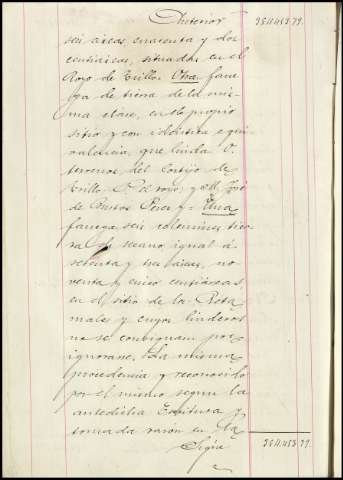 Anterior 35.11.453.79.
seis areas cuarenta y dos
centiareas, situadas en el
Royo de Trillo. Otra fane
ga de tierra de la mis
ma clase, en el propio
sitio y con idéntica equi
valencia, que linda O.
terrenos del Cortijo de
Trillo. P. el royo; y M. José
de Bustos Perez y= Una
fanega seis celemines tier
ra de secano igual á
setenta y tres áreas, no
venta y cinco centiareas,
en el sitio de la Reta
males y cuyos linderos
no se consignan por
ignorarse. La misma
procedencia y reconocido
por el mismo segun la
antedicha Escritura y
tomada razón en la
Sigue 35.11.453.79.